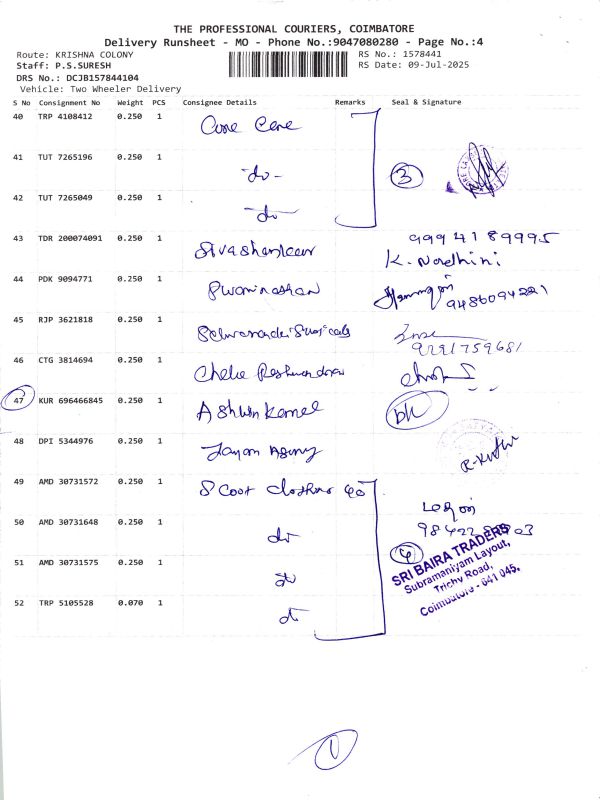 THE PROFESSIONAL COURIERS, COIMBATORE
Delivery Runsheet - MO - Phone No.:9047080280 - Page No.:4
Route: KRISHNA COLONY
RS No.: 1578441
Staff: P.S.SURESH
RS Date: 09-Jul-2025
DRS No.: DCJB157844104
Vehicle: Two Wheeler Delivery
S No Consignment No Weight PCS Consignee Details Remarks Seal & Signature
40 TRP 4108412 0.250 1
41 TUT 7265196 0.250 1 -do- 3
42 TUT 7265049 0.250 1 -do-
43 TDR 200074091 0.250 1 Sivashankar 9994189995
K. Nandhini
44 PDK 9094771 0.250 1 9486094221
45 RJP 3621818 0.250 1
46 CTG 3814694 0.250 1
47 KUR 696466845 0.250 1 Ashwin Kamel
48 DPI 5344976 0.250 1
49 AMD 30731572 0.250 1 Scoot
50 AMD 30731648 0.250 1 do
51 AMD 30731575 0.250 1 do 4
52 TRP 5105528 0.070 1 do
SRI BAIRA TRADERS
Subramaniyam Layout,
Trichy Road,
Coimbatore - 641 045.
1